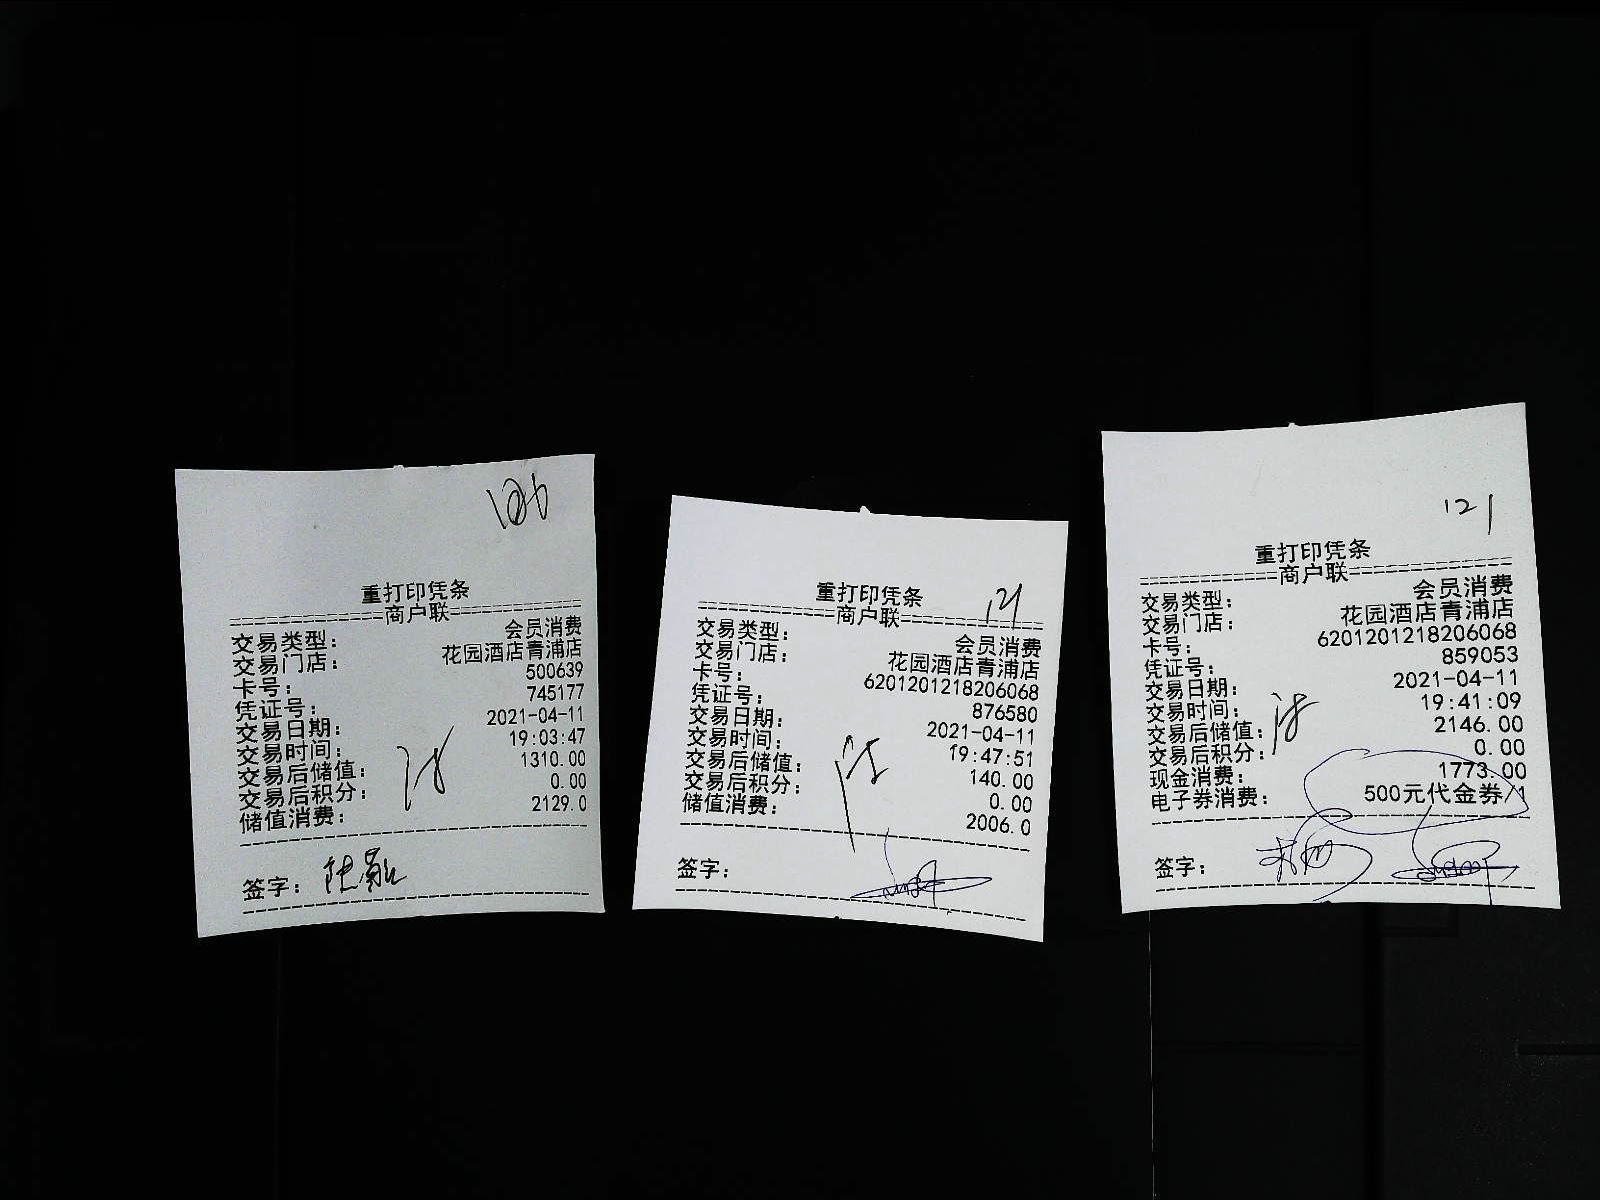 126
重打印凭条
============商户联============
交易类型: 会员消费
交易门店: 花园酒店青浦店
卡号: 500639
凭证号: 745177
交易日期: 2021-04-11
交易时间: 19:03:47
交易后储值: 1310.00
交易后积分: 0.00
储值消费: 2129.0
签字:
121
重打印凭条
============商户联============
交易类型: 会员消费
交易门店: 花园酒店青浦店
卡号: 6201201218206068
凭证号: 876580
交易日期: 2021-04-11
交易时间: 19:47:51
交易后储值: 140.00
交易后积分: 0.00
储值消费: 2006.0
签字:
121
重打印凭条
============商户联============
交易类型: 会员消费
交易门店: 花园酒店青浦店
卡号: 6201201218206068
凭证号: 859053
交易日期: 2021-04-11
交易时间: 19:41:09
交易后储值: 2146.00
交易后积分: 0.00
现金消费: 1773.00
电子券消费: 500元代金券/1
签字: